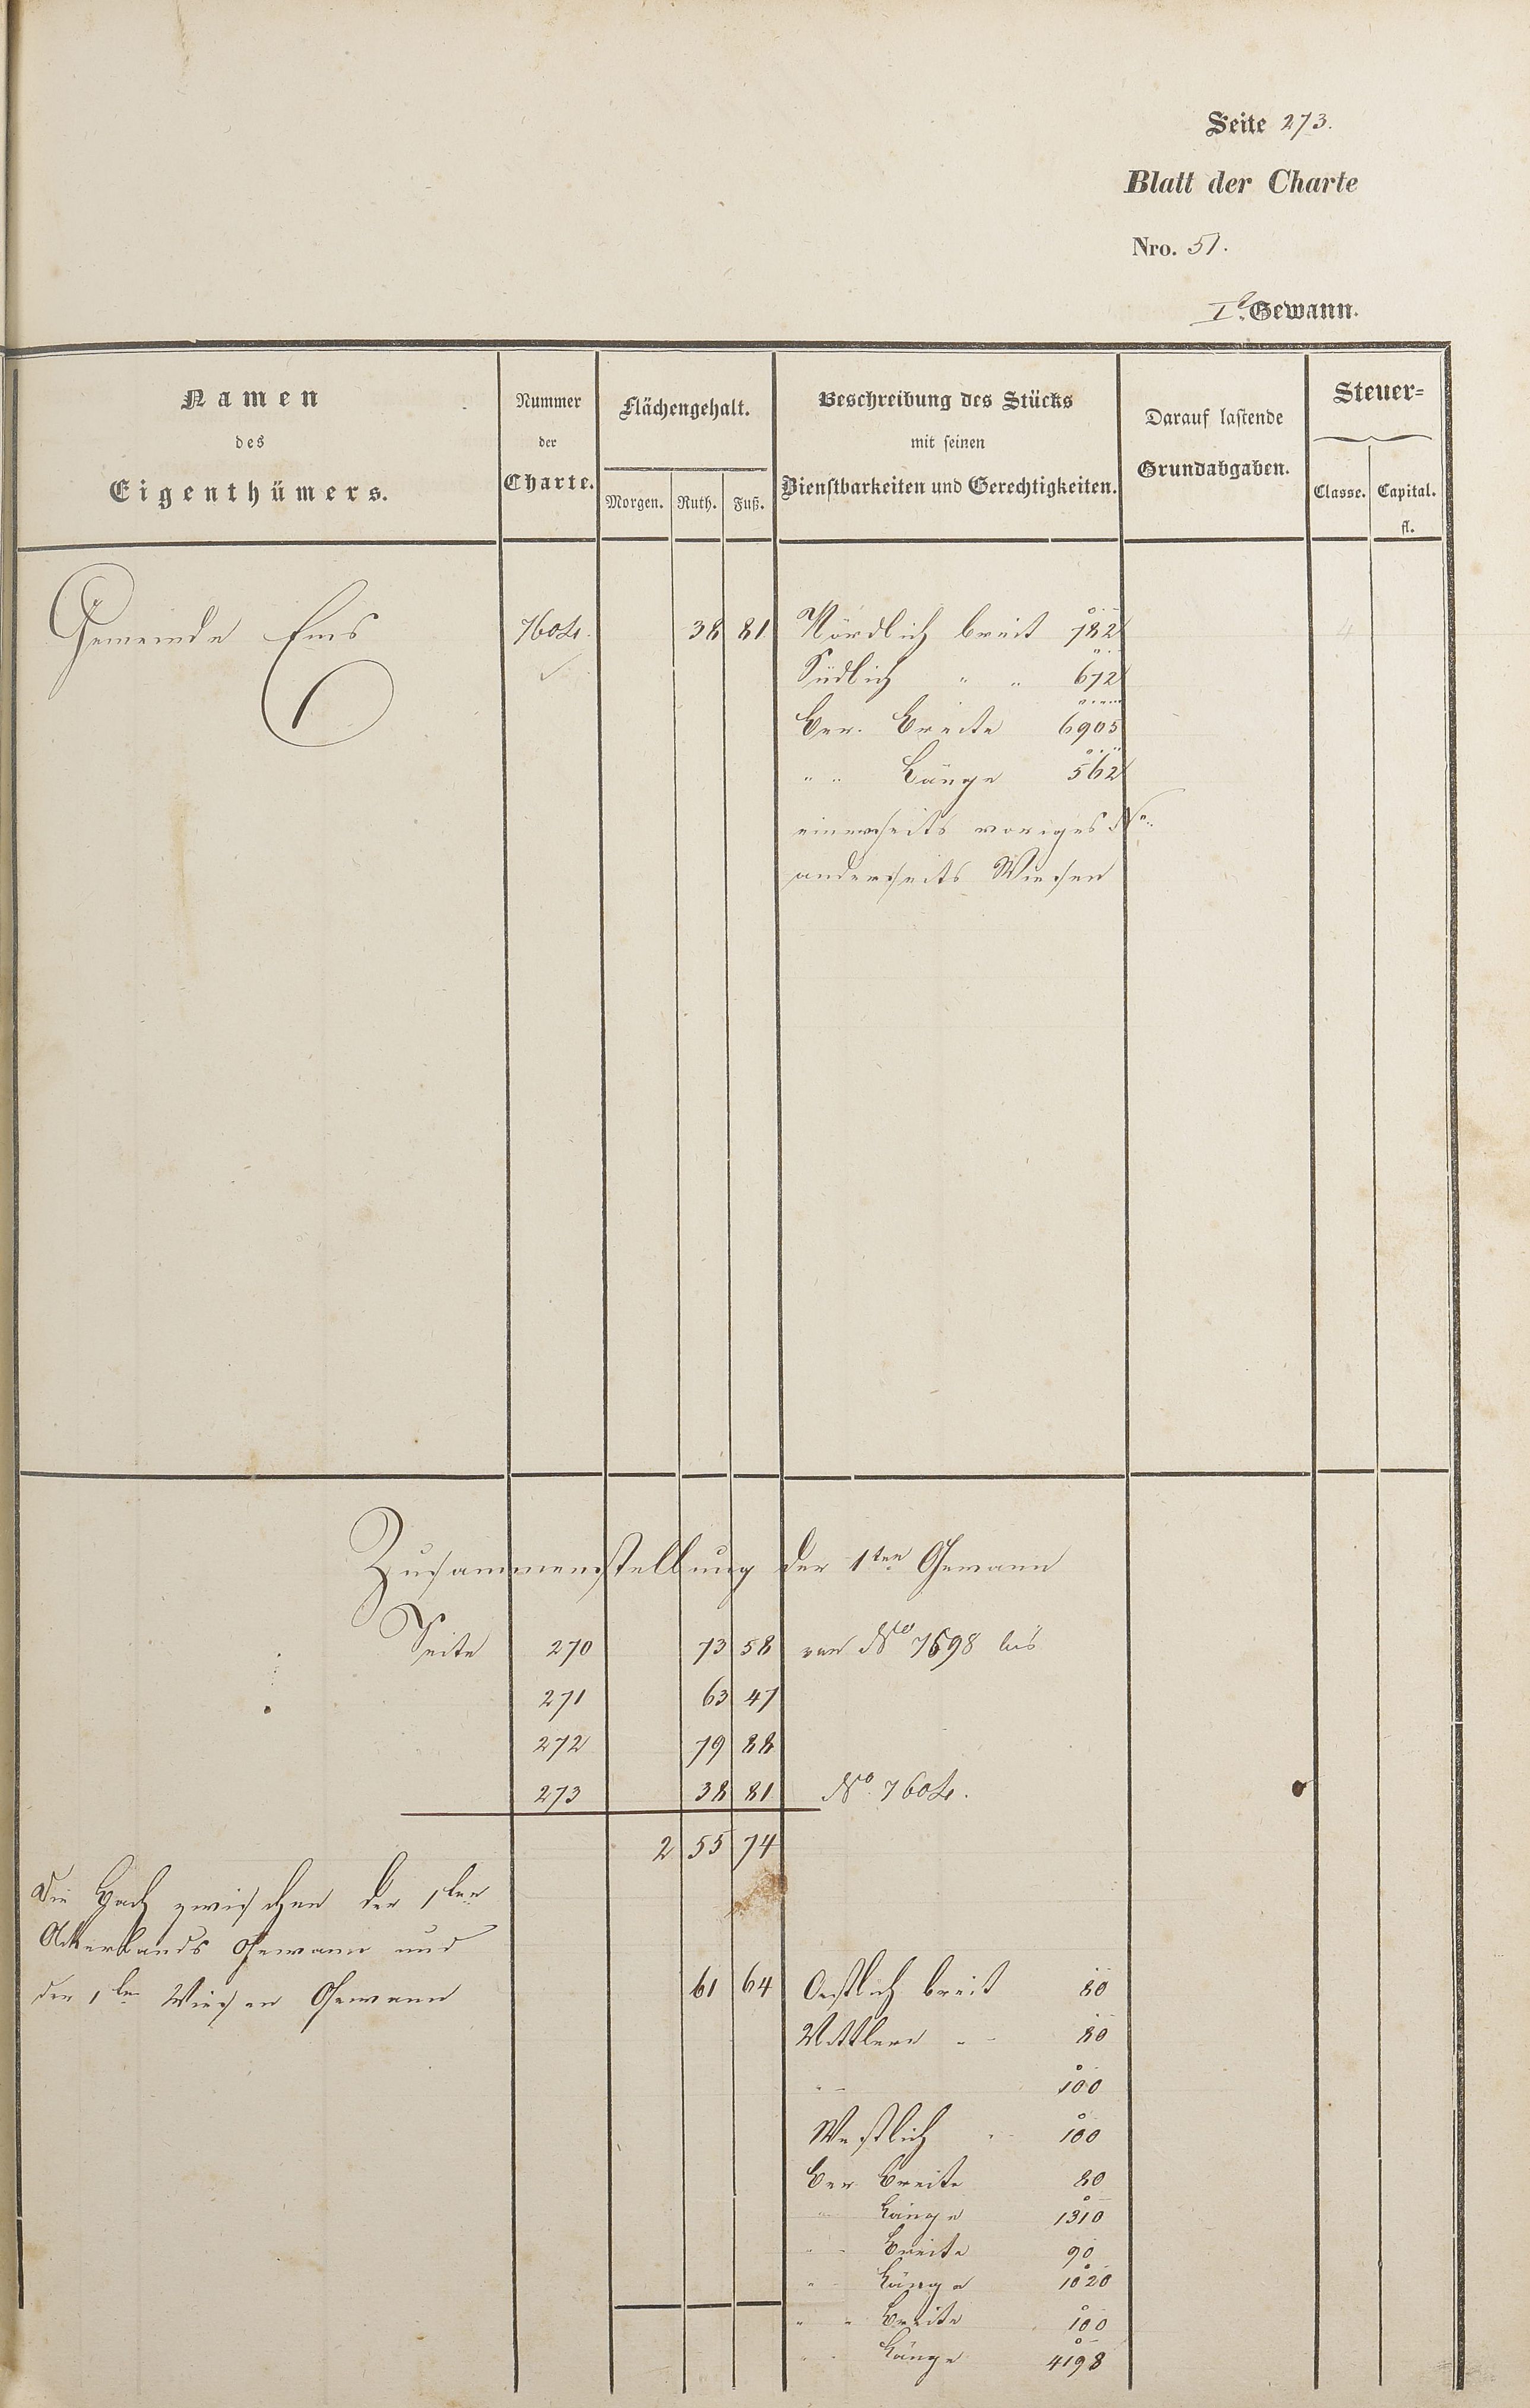 Seite 273.
Blatt der Charte
Nro. 51.
I.te Gewann.
Namen des Eigenthümers.
Nummer der Charte.
Flächengehalt.
Morgen. Ruth. Fuß.
Beschreibung des Stücks mit seinen Dienstbarkeiten und Gerechtigkeiten.
Darauf lastende Grundabgaben.
Steuer=
Classe. Capital. fl.
Gemeinde Ems 7604. 38 81 Nördlich breit 782 4
Südlich " " 672
Ber. Breite 6905
" " Länge 562
einerseits voriges No.
anderseits Wiesen
Zusammenstellung der 1ten Gewann
Seite 270 73 58 von No 7598 bis
271 63 47
272 79 88
273 38 81 No. 7604.
2 55 74
Die Bach zwischen der 1ten
Ackerlands Gewann und
der 1ten Wiesen Gewann
61 64 Oestlich breit 80
Mittlere " " 80
" " 100
Westlich " " 100
Ber. Breite 80
" Länge 1310
" " Breite 90
" " Länge 1020
" " Breite 100
" " Länge 4198